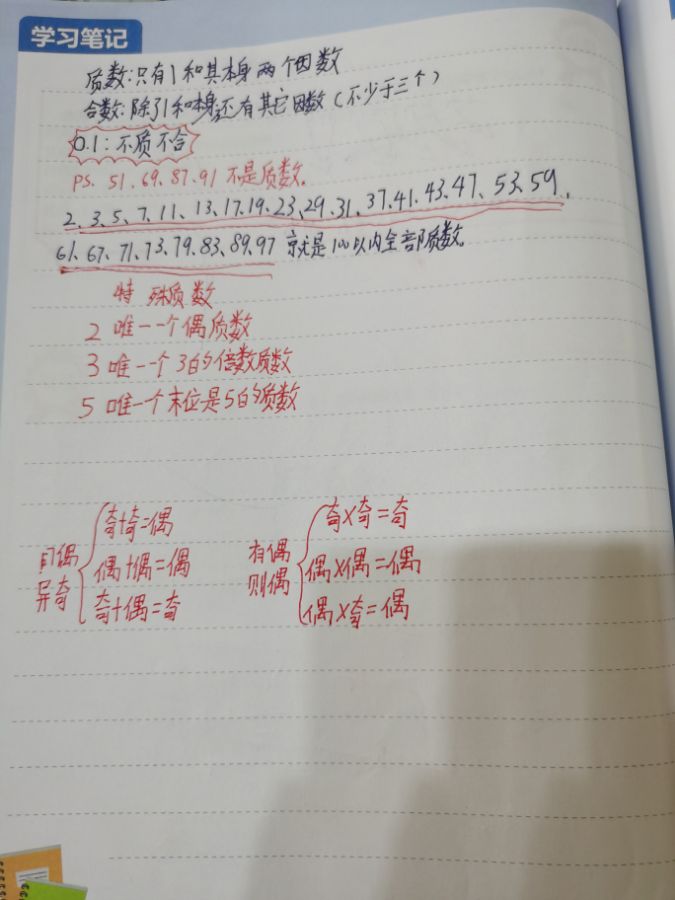 学习笔记
质数:只有1和其本身两个因数
合数:除了1和本身还有其它因数(不少于三个)
0.1:不质不合
PS. 51、69、87、91 不是质数。
2、3、5、7、11、13、17、19、23、29、31、37、41、43、47、53、59、
61、67、71、73、79、83、89、97 就是100以内全部质数。
特殊质数
2 唯一一个偶质数
3 唯一个3的倍数质数
5 唯一个末位是5的质数
同偶
异奇
奇+奇=偶
偶+偶=偶
奇+偶=奇
有偶
则偶
奇×奇=奇
偶×偶=偶
偶×奇=偶